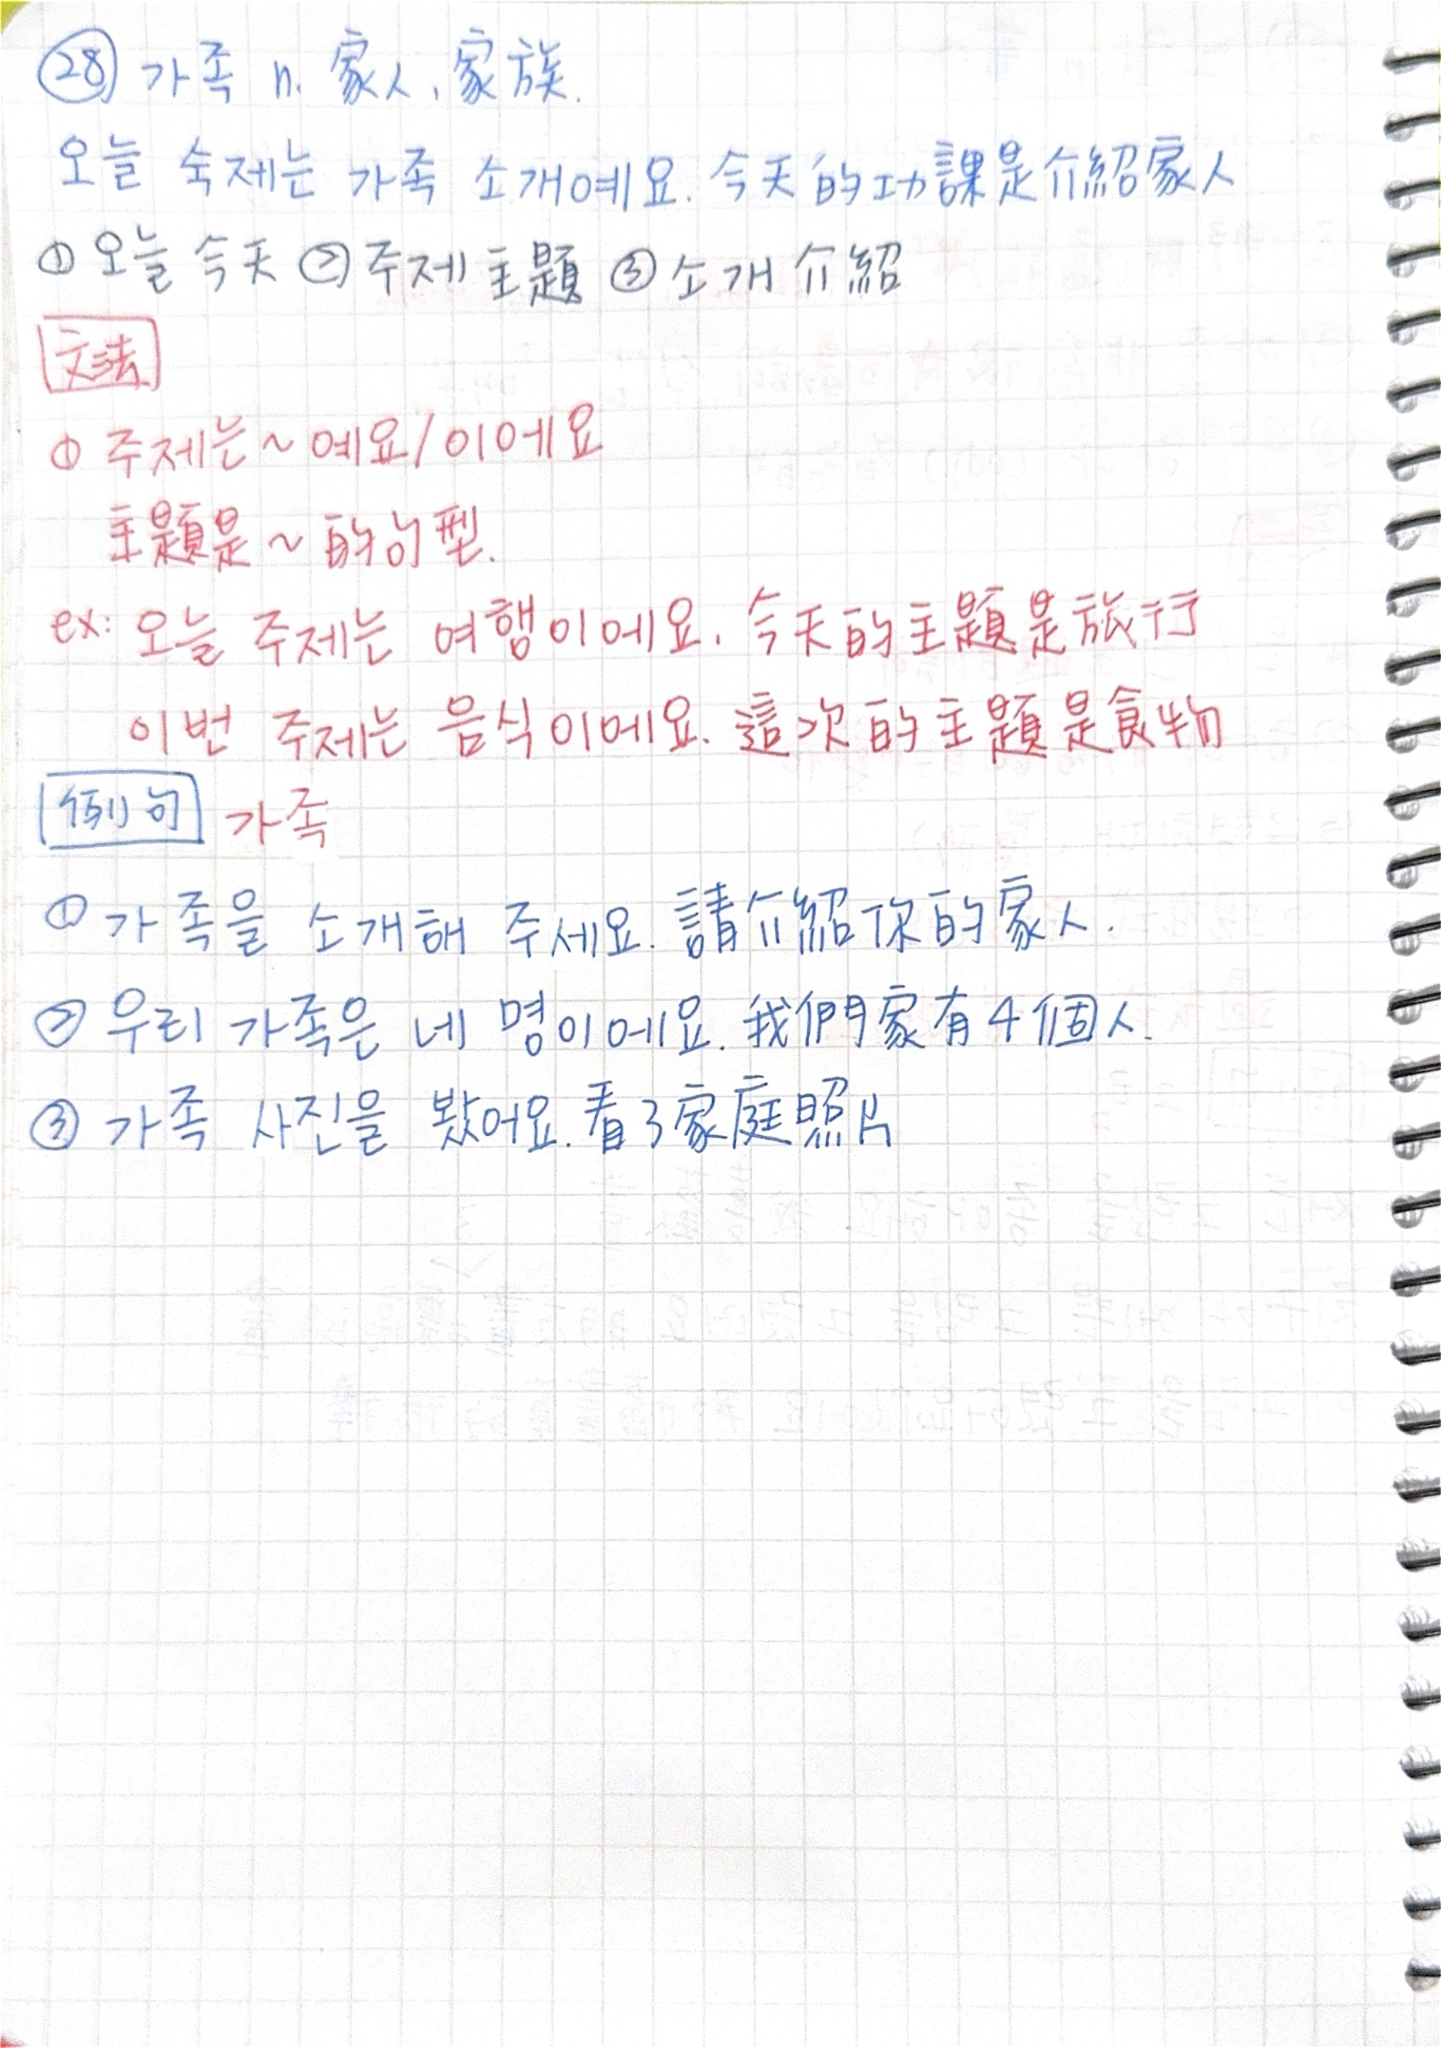 ㉘ 가족 n. 家人、家族.
오늘 숙제는 가족 소개예요. 今天的功課是介紹家人
① 오늘 今天 ② 주제 主題 ③ 소개 介紹
文法
① 주제는 ~ 예요/이에요
主題是 ~ 的句型.
ex: 오늘 주제는 여행이에요. 今天的主題是旅行
이번 주제는 음식이에요. 這次的主題是食物
例句 가족
① 가족을 소개해 주세요. 請介紹你的家人.
② 우리 가족은 네 명이에요. 我們家有4個人.
③ 가족 사진을 봤어요. 看了家庭照片